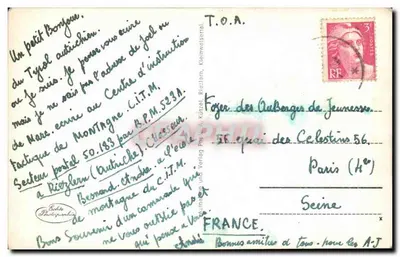 T.O.A.
Un petit Bonjour
du Tyrol autrichien.
où je suis. je peux vous écrire
mais je ne sais pas l'adresse de Joel ou
de Marc. écrire au Centre d'instruction
tactique de MONTAGNE C.I.T.M.
Secteur postal 50.193 par B.P.M. 523A.
à Riezlern (Autriche)
Bernard. André. à l'est
de montagne du C.I.T.M.
Bons Souvenirs d'un camarade qui
ne vous oublie pas et
qui pense à Vous.
André
RF
Foyer des Auberges de Jeunesse
56 quai des Celestins 56.
Paris (4e)
Seine
FRANCE.
Bonnes amitiés à tous. pour les A-J